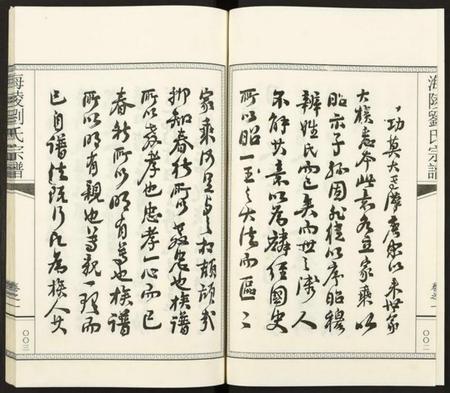 海陵劉氏宗譜
卷之一
〇〇二
功莫大
唐宋以來世家
大族悉本此意各立家乘以
昭示子孫固非徒以序昭穆
辨姓氏而已矣而世之人
不解其意以爲麟經國史
所以昭一王之大法而區區
家乘何足與之相頡頏哉
抑知春秋所以教忠也族譜
所以教孝也忠孝一心而已
春秋所以明有尊也族譜
所以明有親也尊親一理而
已自譜法既行凡爲族人者
海陵劉氏宗譜
卷之一
〇〇三